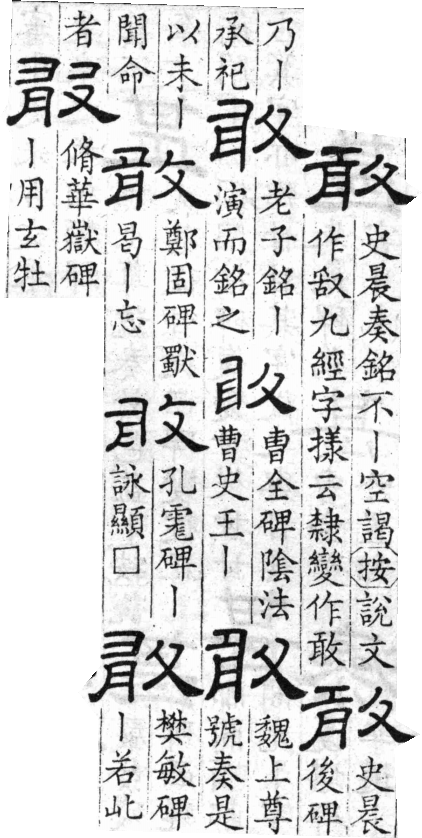 敢
史晨奏銘不丨空謁按說文
作九經字㨾云隸變作敢
敢
史晨
後碑
乃丨
承祀
敢
老子銘丨
演而銘之
敢
曹全碑陰法
曹史王丨
敢
魏上尊
號奏是
以未丨
聞命
敢
鄭固碑獸
曷丨忘
敢
孔碑丨
詠顯□
敢
樊敏碑
丨若此
者
敢
脩華嶽碑
丨用玄牡